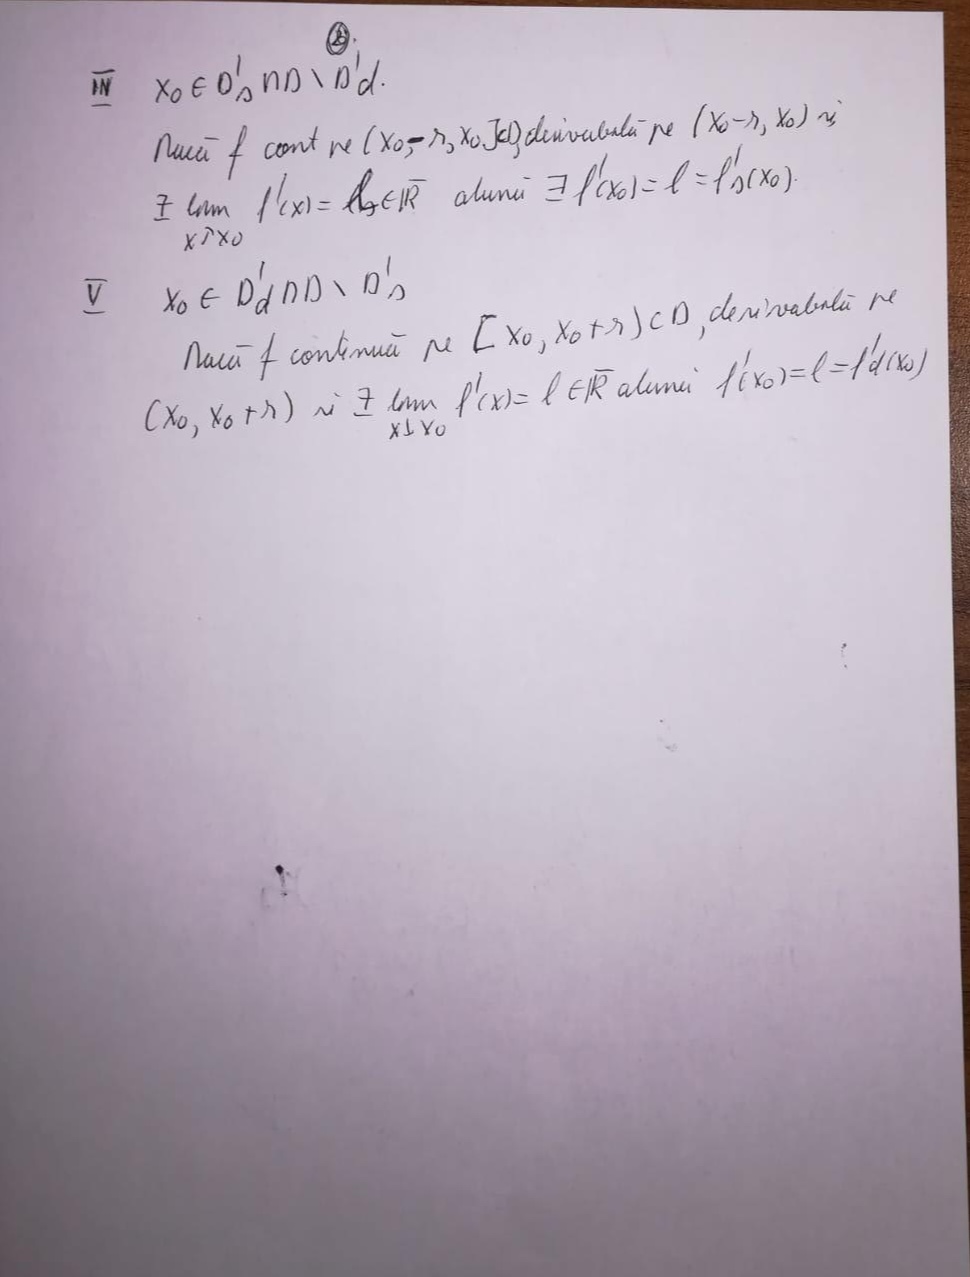 ②.
IV x₀ ∈ D's ∩ D \ D'd.
Dacă f cont pe (x₀-r, x₀] ⊂ D, derivabilă pe (x₀-r, x₀) și
∃ lim f'(x) = ls ∈ R̅ atunci ∃ f'(x₀) = l = f's(x₀).
x↑x₀
V x₀ ∈ D'd ∩ D \ D's
Dacă f continuă pe [x₀, x₀+r) ⊂ D, derivabilă pe
(x₀, x₀+r) și ∃ lim f'(x) = l ∈ R̅ atunci f'(x₀) = l = f'd(x₀)
x↓x₀